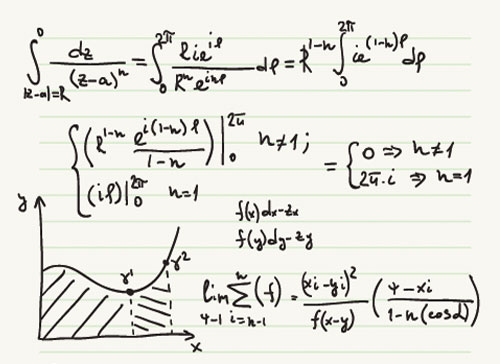 ∫₀|z-a|=R dz/(z-a)ⁿ = ∫₀^2π Rie^iφ/Rⁿe^inφ dφ = R^1-n ∫₀^2π ie^(1-n)φ dφ
{ (R^1-n e^i(1-n)φ/1-n)|₀^2π n≠1; = { 0 ⇒ n≠1
(iφ)|₀^2π n=1 2π·i ⇒ n=1
y
f(x)dx-zx
f(y)dy-zy
γ¹ γ²
lim 4-1 ∑ⁿ i=n-1 (f) = (xi-yi)²/f(x-y) (4-xi/1-n(cosα))
x